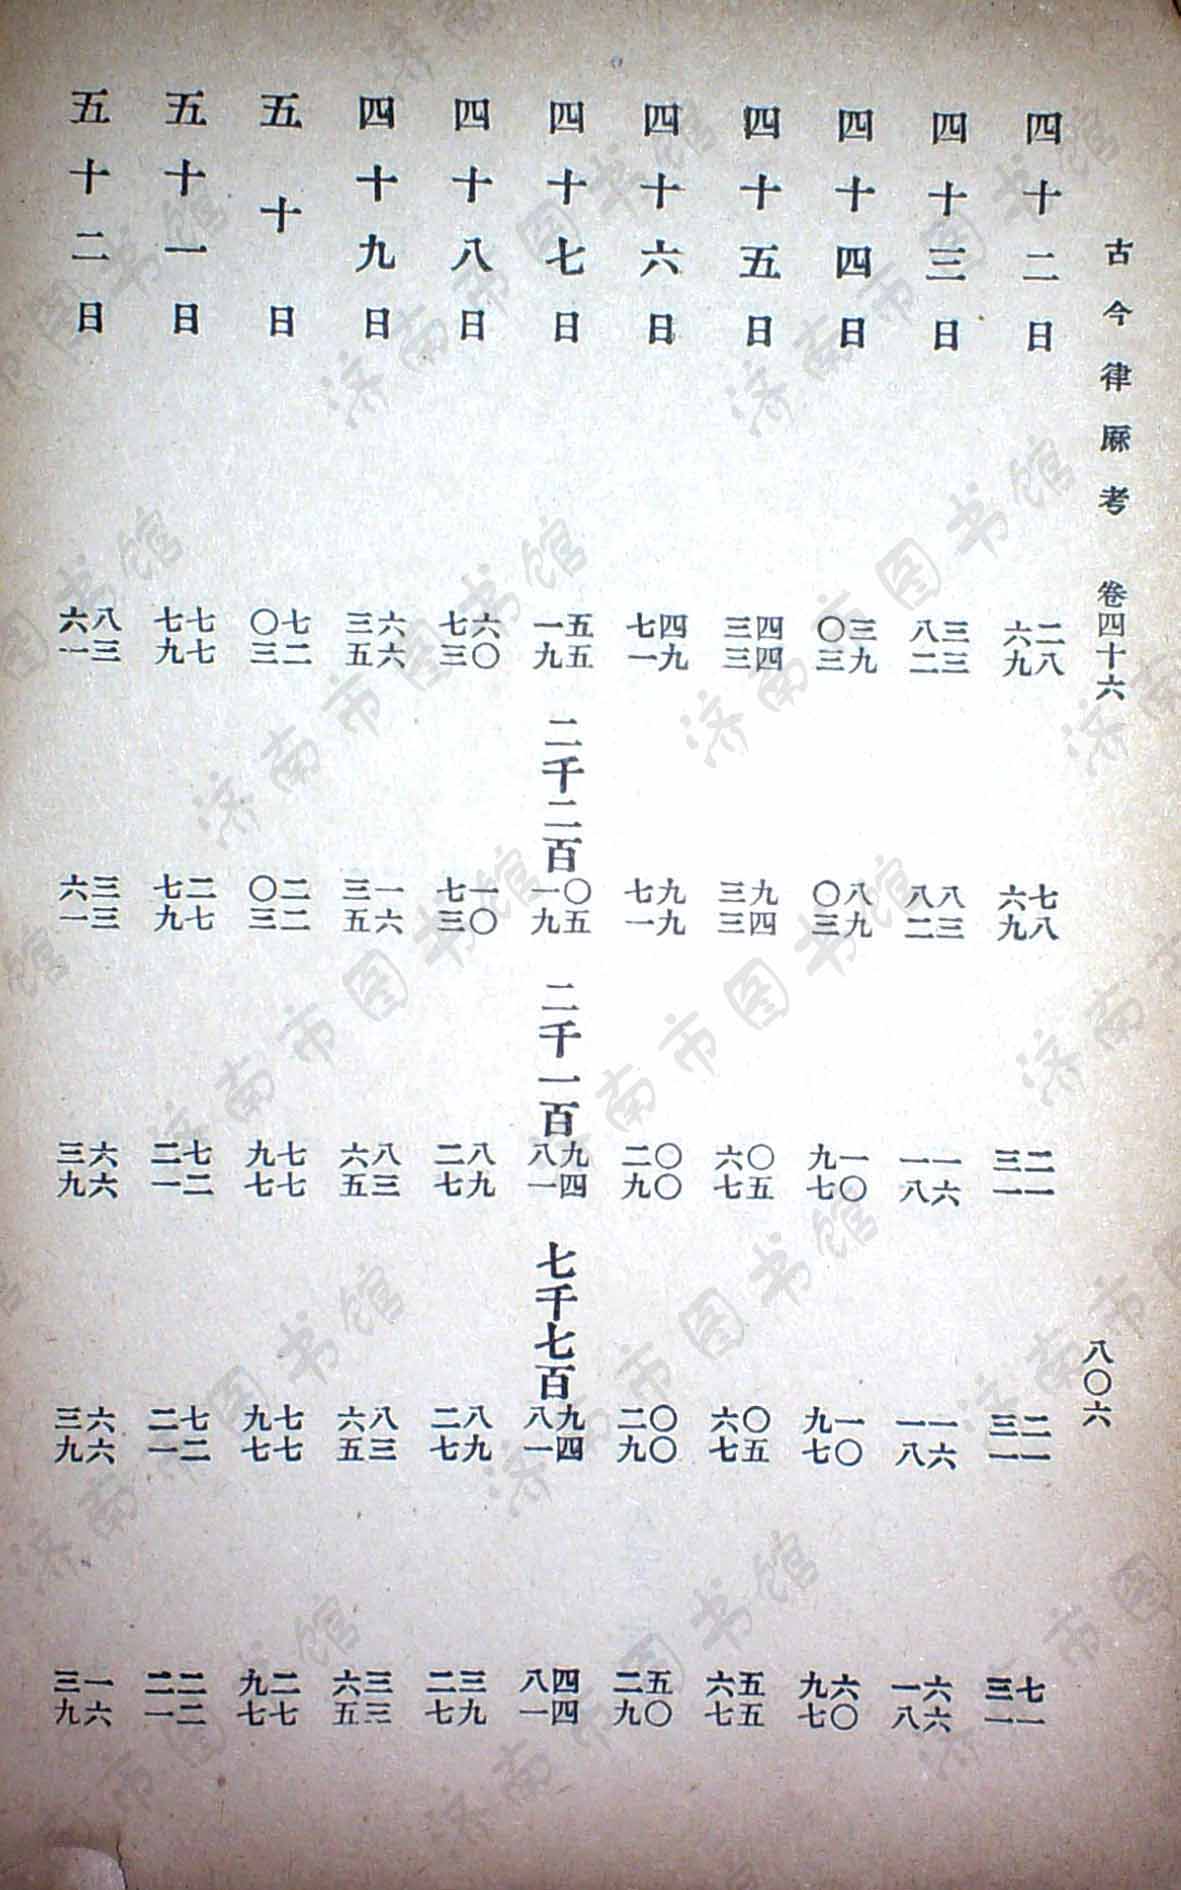 古今律厤考 卷四十六 八〇六
四十二日 二八六九 七八六九 二一三一 二一三一 七一三一
四十三日 三三八二 八三八二 一六一八 一六一八 六六一八
四十四日 三九〇三 八九〇三 一〇九七 一〇九七 六〇九七
四十五日 四四三三 九四三三 〇五六七 〇五六七 五五六七
四十六日 四九七一 九九七一 〇〇二九 〇〇二九 五〇二九
四十七日 五五一九 二千二百 〇五一九 二千一百 九四八一 七千七百 九四八一 四四八一
四十八日 六〇七三 一〇七三 八九二七 八九二七 三九二七
四十九日 六六三五 一六三五 八三六五 八三六五 三三六五
五十日 七二〇三 二二〇三 七七九七 七七九七 二七九七
五十一日 七七七九 二七七九 七二二一 七二二一 二二二一
五十二日 八三六一 三三六一 六六三九 六六三九 一六三九
济南市图书馆